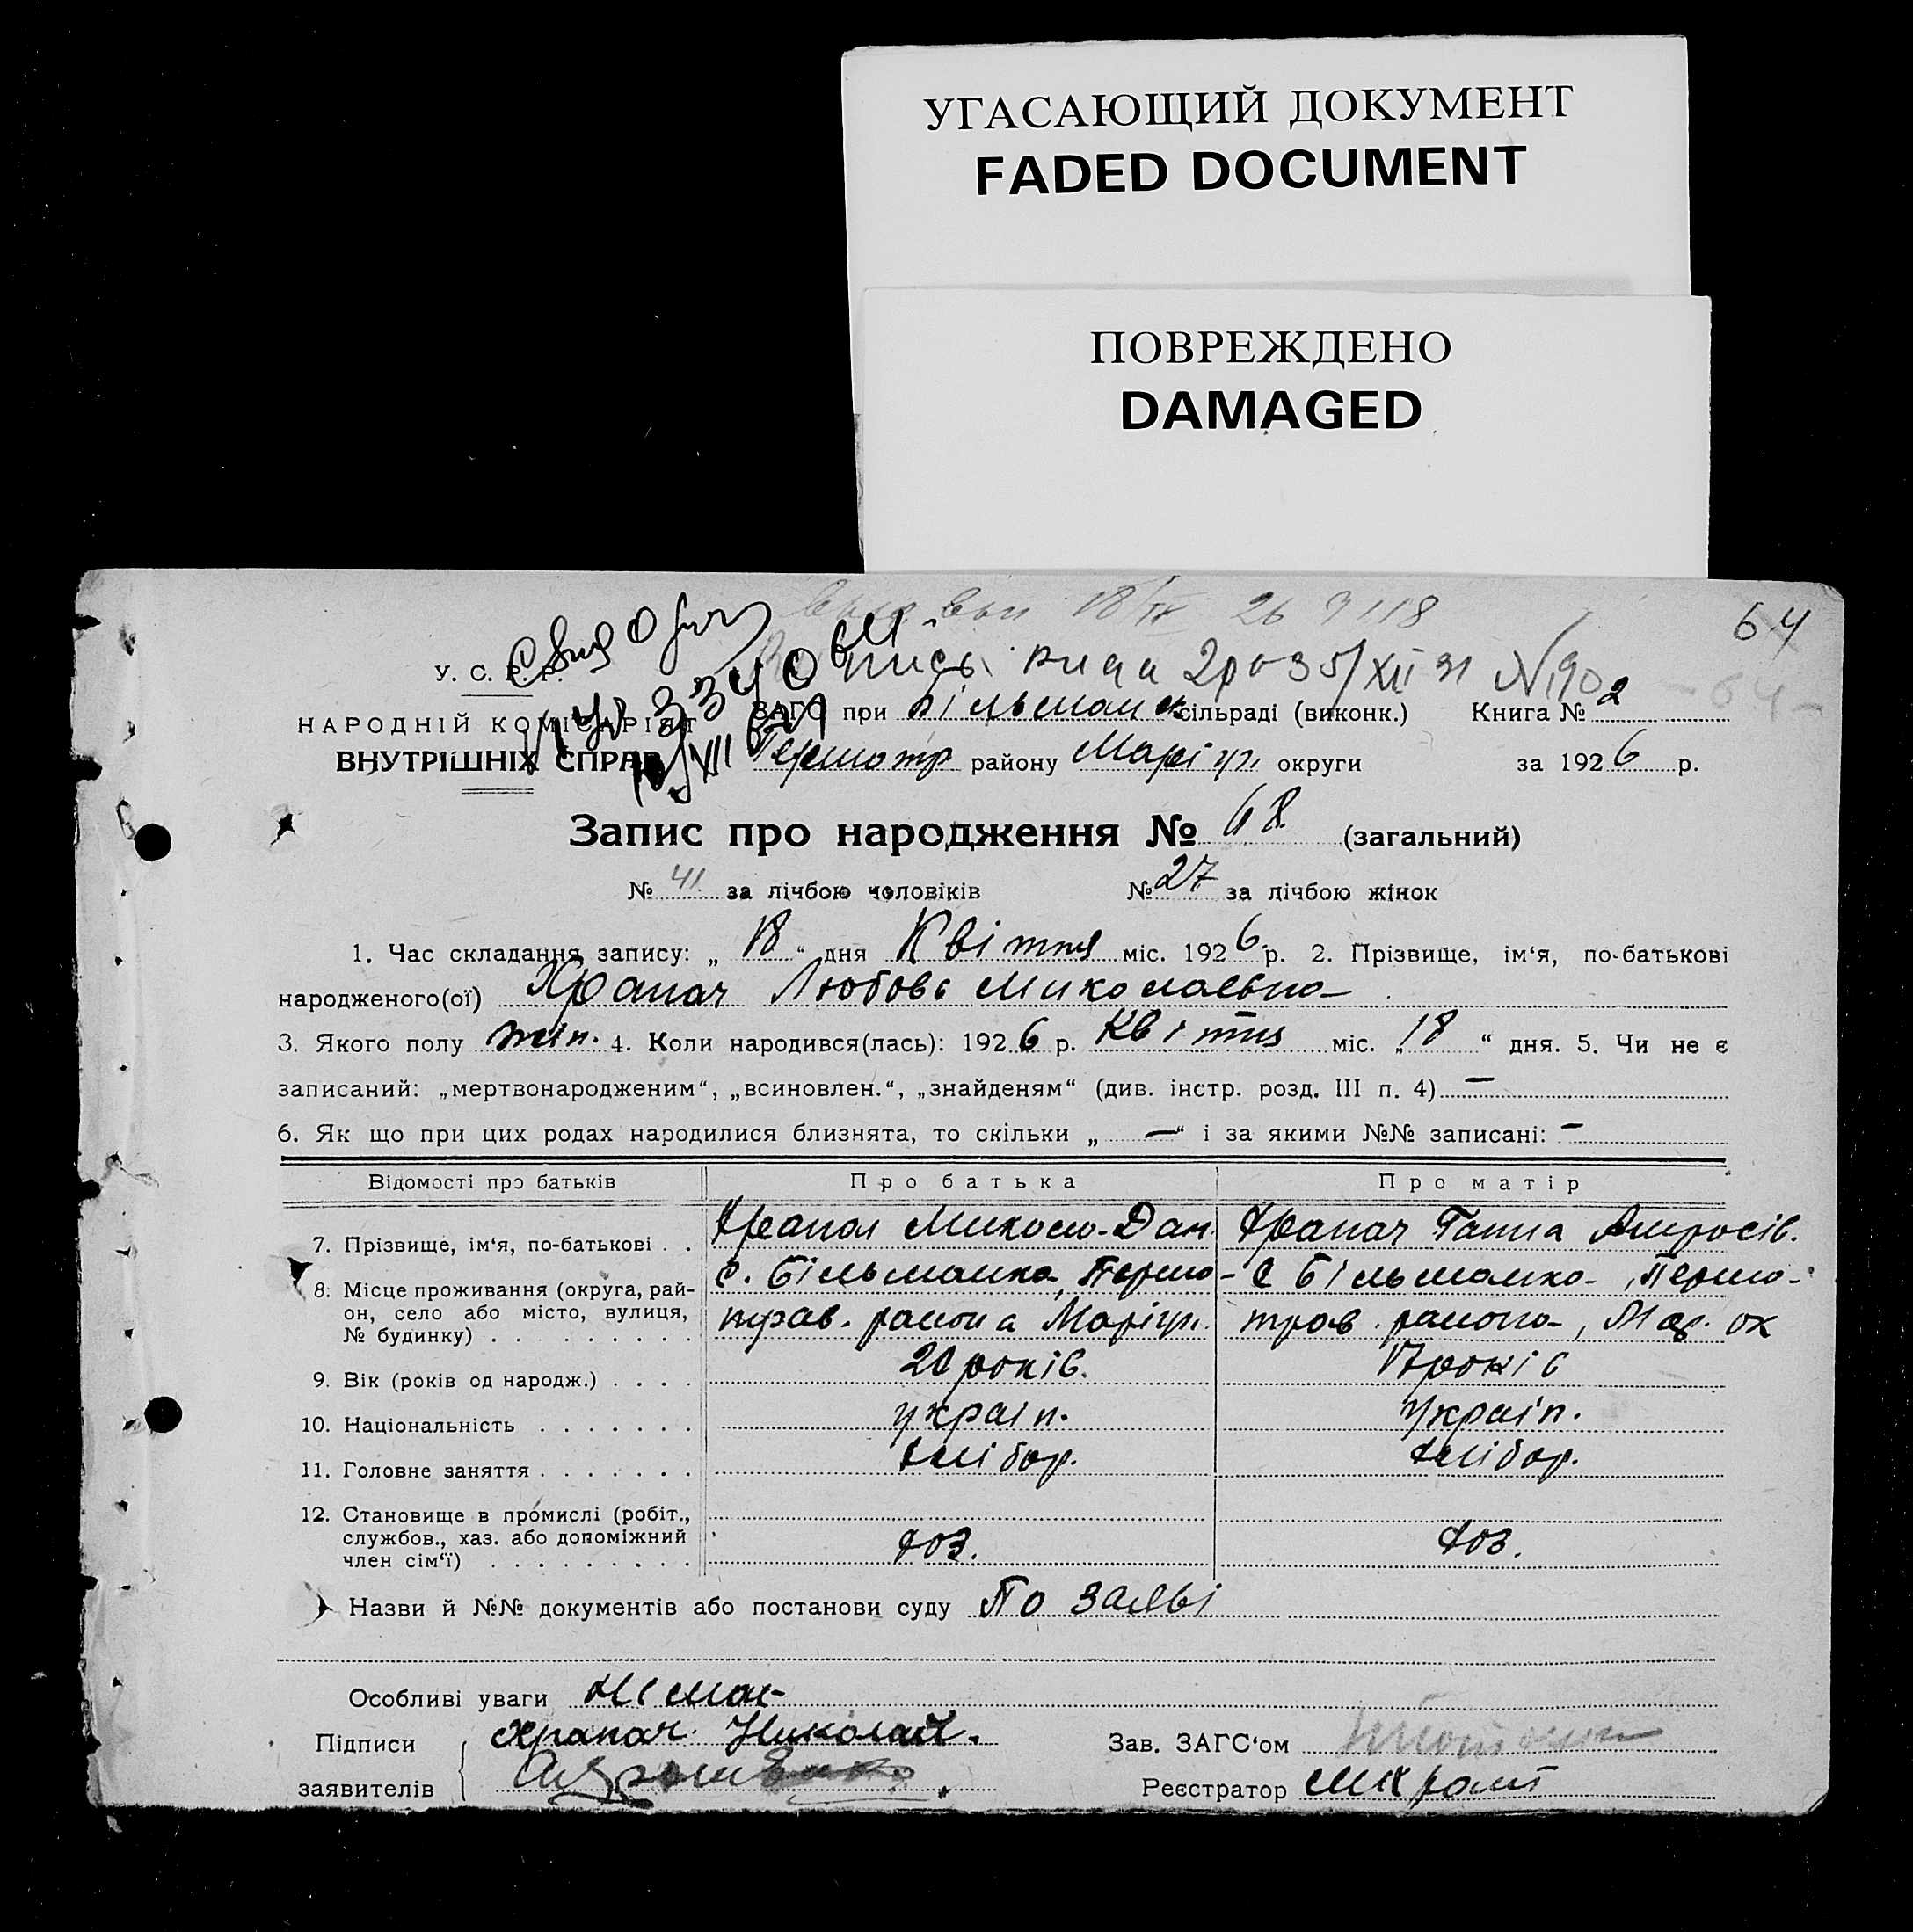 УГАСАЮЩИЙ ДОКУМЕНТ
FADED DOCUMENT
ПОВРЕЖДЕНО
DAMAGED
64
У. С. Р. Р.
НАРОДНІЙ КОМІСАРІЯТ
ВНУТРІШНІХ СПРАВ
ЗАГС при Більманск. сільраді (виконк.) Книга № 2
Першотр району Маріуп. округи за 1926 р.
Запис про народження № 68 (загальний)
№ 41 за лічбою чоловіків № 27 за лічбою жінок
1. Час складання запису: „ 18 “ дня Квітня міс. 1926 р. 2. Прізвище, ім‘я, по-батькові
народженого(ої) Храпач Любовь Миколаевна
3. Якого полу жін. 4. Коли народився(лась): 1926 р. Квітня міс. „ 18 “ дня. 5. Чи не є
записаний: „мертвонародженим“, „всиновлен.“, „знайденям“ (див. інстр. розд. III п. 4) —
6. Як що при цих родах народилися близнята, то скільки „ — “ і за якими №№ записані: —
Відомості про батьків Про батька Про матір
7. Прізвище, ім‘я, по-батькові . . Храпач Микола Дан. Храпач Ганна Амросів.
8. Місце проживання (округа, рай- с. Більманка, Першо- с Більманка, Першо-
он, село або місто, вулиця, трав. района Маріуп. трав. района, Мар. ок
№ будинку)
9. Вік (років од народж.) . . . . 20 років. 17 років
10. Національність україн. україн.
11. Головне заняття хлібор. хлібор.
12. Становище в промислі (робіт.,
службов., хаз. або допоміжний хоз. хоз.
член сім‘ї)
Назви й №№ документів або постанови суду По заяві
Особливі уваги Немає
Підписи Храпач Николай. Зав. ЗАГС‘ом
заявителів Реєстратор